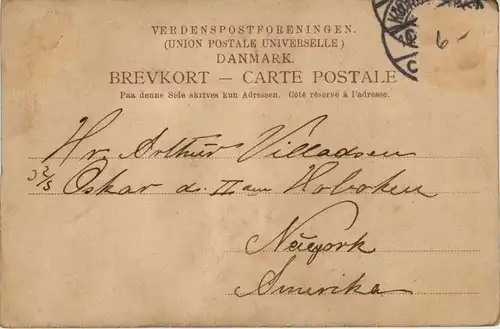 VERDENSPOSTFORENINGEN.
(UNION POSTALE UNIVERSELLE)
DANMARK.
BREVKORT — CARTE POSTALE
Paa denne Side skrives kun Adressen. Côté réservé à l'adresse.
6-
Hr. Arthur Villadsen
Oskar d. II den Hoboken
Neuyork
Amerika